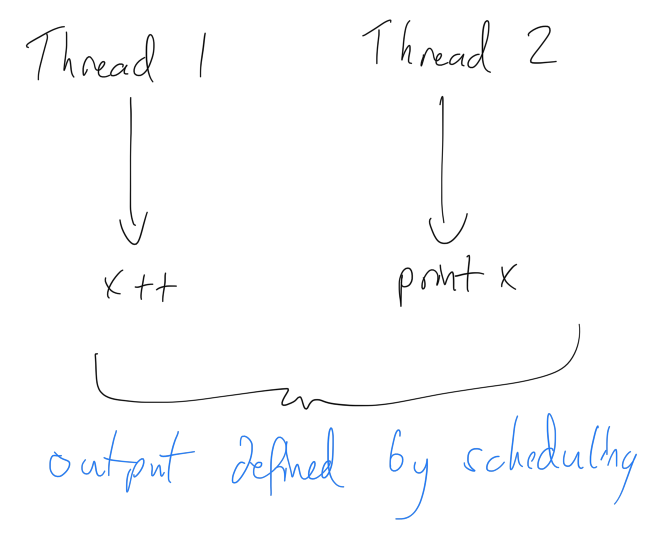 Thread 1 Thread 2
x++ print x
output defined by scheduling